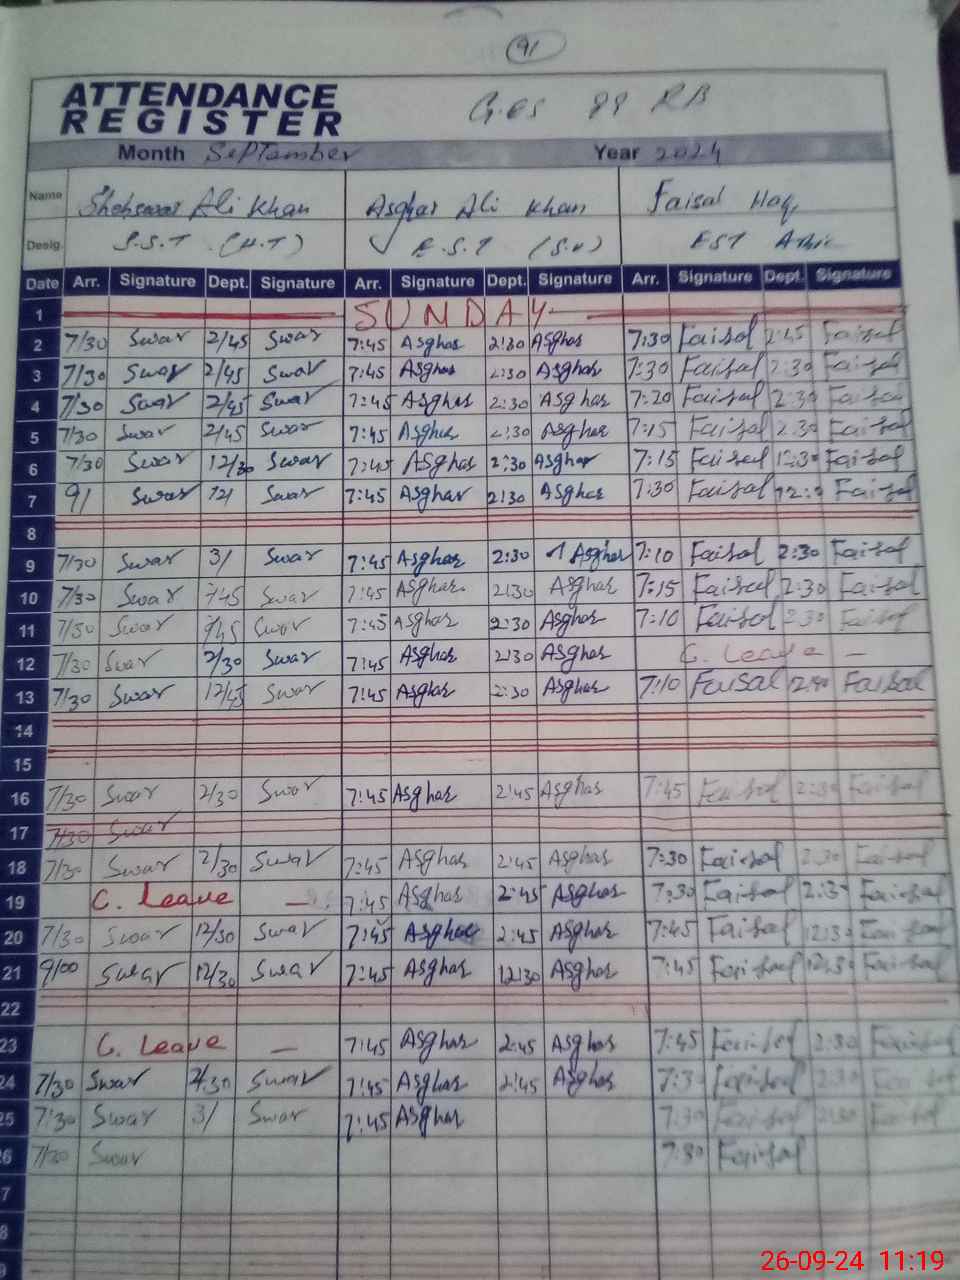 91
ATTENDANCE REGISTER
G.ES 88 RB
Month SepTamber Year 2024
Name Shehswar Ali Khan Asghar Ali Khan Faisal Haq
Desig. S.S.T (H.T) E.S.T EST
Date Arr. Signature Dept. Signature Arr. Signature Dept. Signature Arr. Signature Dept. Signature
1 SUNDAY
2 7/30 Swar 2/45 Swar 7:45 Asghar 2:30 Asghar 7:30 Faisal 2:45 Faisal
3 7/30 Swar 2/45 Swar 7:45 Asghar 2:30 Asghar 7:30 Faisal 2:30 Faisal
4 7/30 Swar 2/45 Swar 7:45 Asghar 2:30 Asghar 7:20 Faisal 2:30 Faisal
5 7/30 Swar 2/45 Swar 7:45 Asghar 2:30 Asghar 7:15 Faisal 2:30 Faisal
6 7/30 Swar 12/30 Swar 7:45 Asghar 2:30 Asghar 7:15 Faisal 12:30 Faisal
7 9/ Swar 12/ Swar 7:45 Asghar 2:30 Asghar 7:30 Faisal Faisal
8
9 7/30 Swar 3/ Swar 7:45 Asghar 2:30 Asghar 7:10 Faisal 2:30 Faisal
10 7/30 Swar Swar 7:45 Asghar 2:30 Asghar 7:15 Faisal 2:30 Faisal
11 7/30 Swar Swar 7:45 Asghar 2:30 Asghar 7:10 Faisal 2:30 Faisal
12 7/30 Swar 2/30 Swar 7:45 Asghar 2:30 Asghar C. Leave —
13 7/30 Swar 12/45 Swar 7:45 Asghar 2:30 Asghar 7:10 Faisal Faisal
14
15
16 7/30 Swar 2/30 Swar 7:45 Asghar 2:45 Asghar 7:45 Faisal 2:30 Faisal
17 7/30 Swar
18 7/30 Swar 2/30 Swar 7:45 Asghar 2:45 Asghar 7:30 Faisal 2:30 Faisal
19 C. Leave — 7:45 Asghar 2:45 Asghar 7:30 Faisal 2:3 Faisal
20 7/30 Swar 12/30 Swar 7:45 Asghar 2:45 Asghar 7:45 Faisal 12:3 Faisal
21 9/00 Swar 12/30 Swar 7:45 Asghar 12:30 Asghar 7:45 Faisal 12:3 Faisal
22
23 C. Leave — 7:45 Asghar 2:45 Asghar 7:45 Faisal 2:30 Faisal
24 7/30 Swar 2/30 Swar 7:45 Asghar 2:45 Asghar 7:3 Faisal 2:30 Faisal
25 7:30 Swar 3/ Swar 7:45 Asghar 7:30 Faisal 2:30 Faisal
6 7/30 Swar 7:30 Faisal
7
8
9
26-09-24 11:19